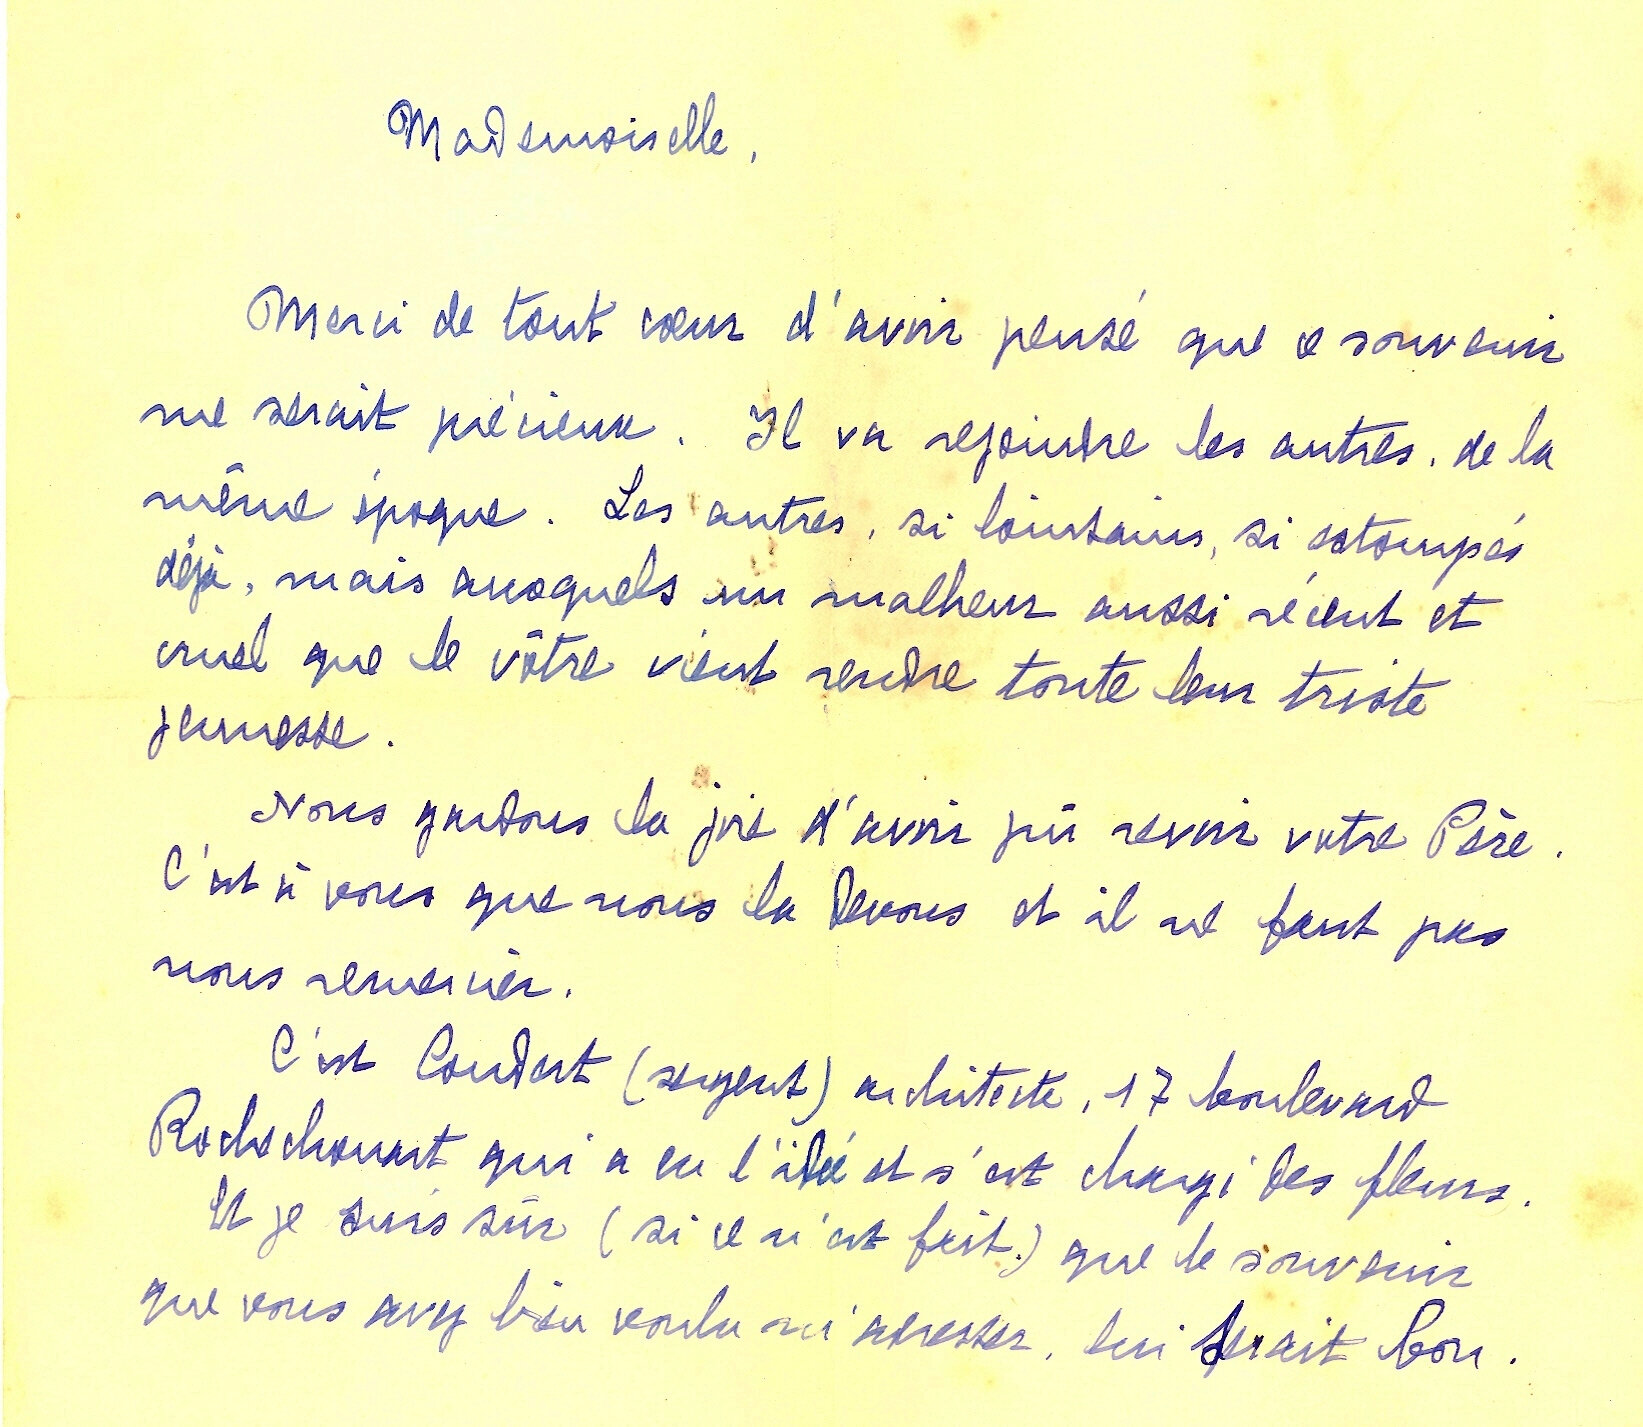 Mademoiselle,
Merci de tout cœur d'avoir pensé que ce souvenir
me serait précieux. Il va rejoindre les autres, de la
même époque. Les autres, si lointains, si estompés
déjà, mais auxquels un malheur aussi récent et
cruel que le vôtre vient rendre toute leur triste
jeunesse.
Nous gardons la joie d'avoir pû revoir votre Père.
C'est à vous que nous la devons et il ne faut pas
nous remercier.
C'est Coudert (sergent) architecte, 17 boulevard
Rochechouart qui a eu l'idée et s'est chargé des fleurs.
Et je suis sûr (si ce n'est fait.) que le souvenir
que vous avez bien voulu m'adresser, lui serait bon.